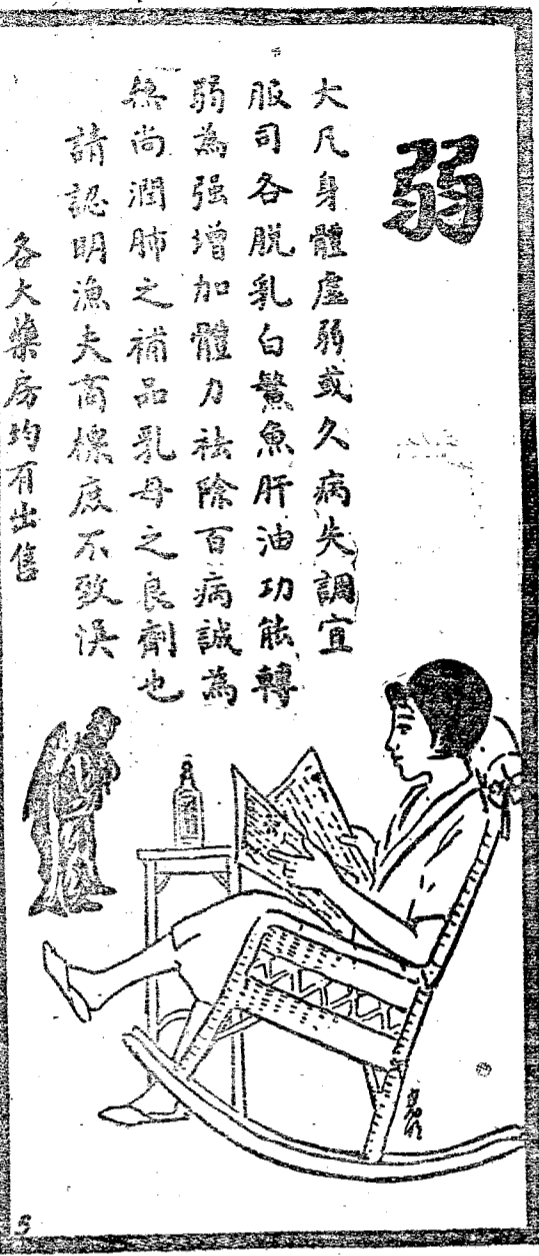 弱
大凡身體虛弱或久病失調宜
服司各脫乳白鰵魚肝油功能轉
弱為强增加體力祛除百病誠為
無尚潤肺之補品乳母之良劑也
請認明漁夫商標庶不致誤
各大藥房均有出售
3